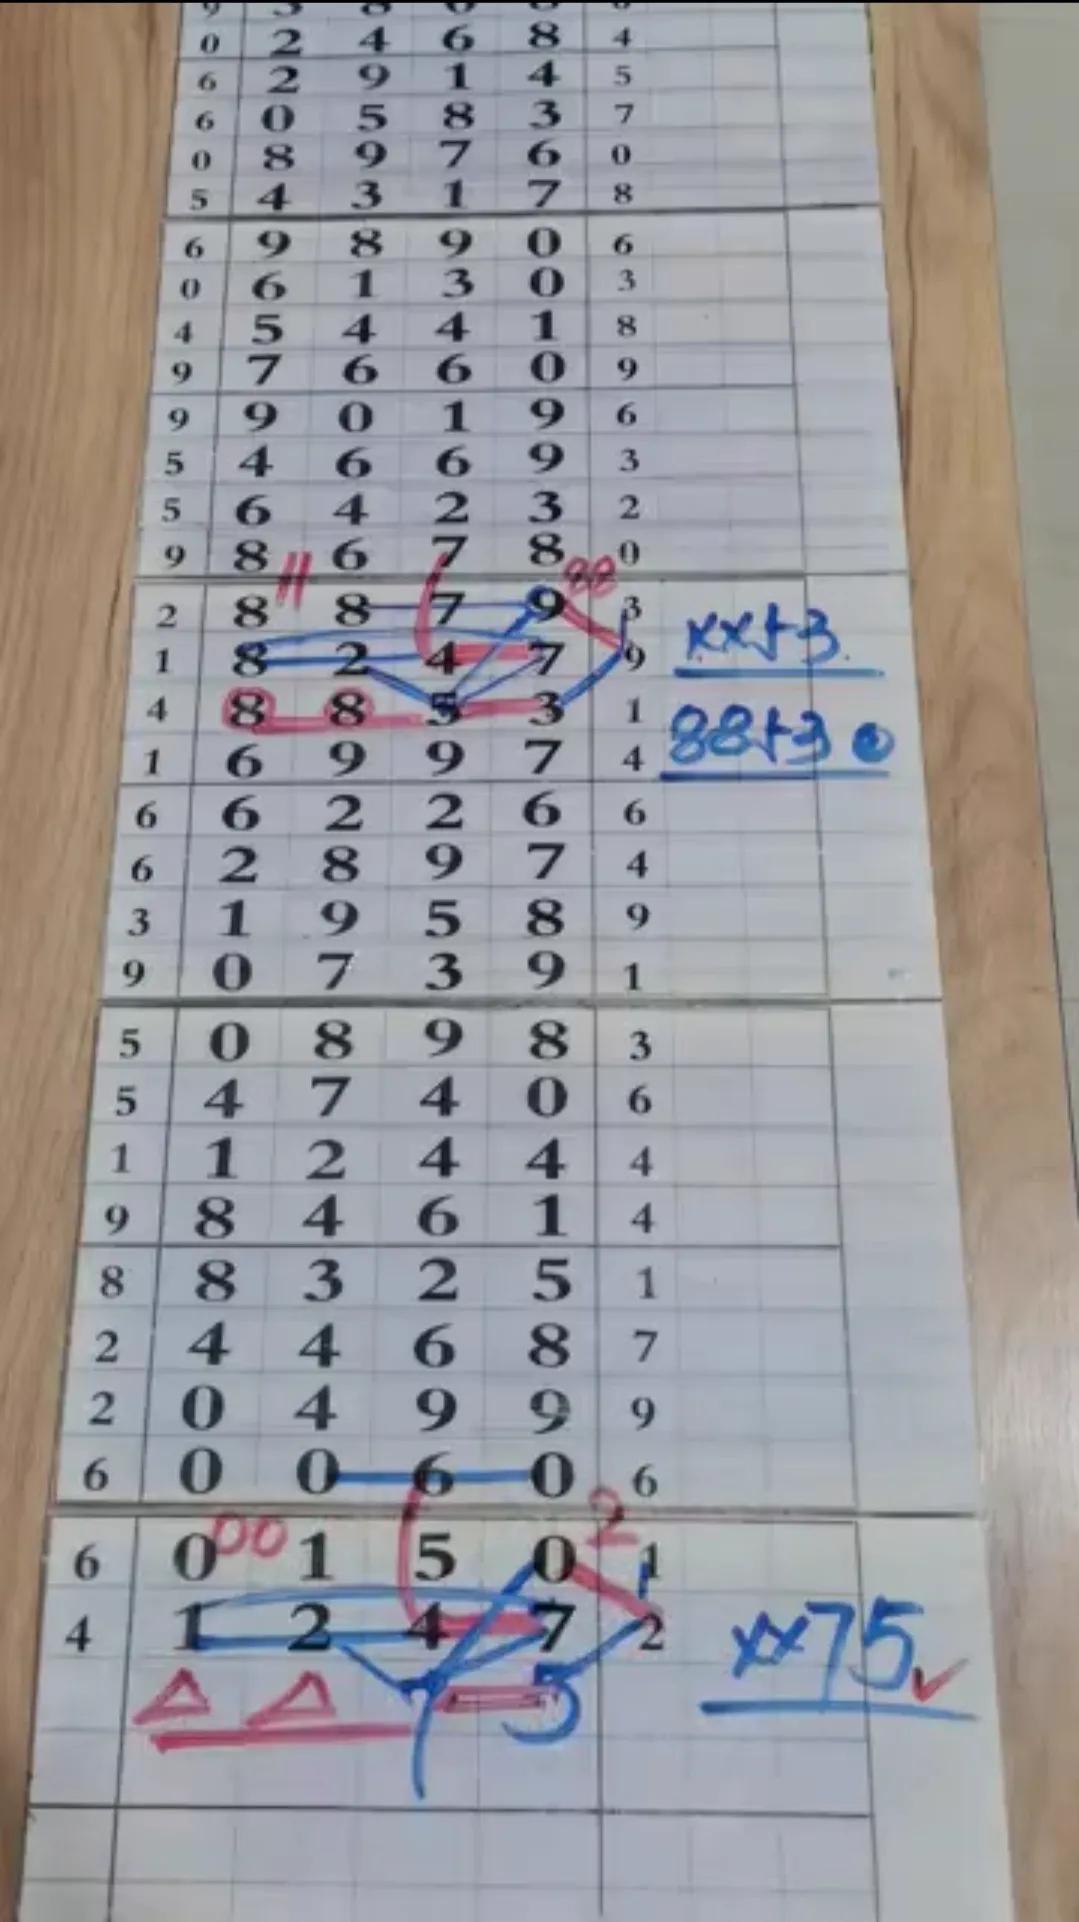 0 2 4 6 8 4
6 2 9 1 4 5
6 0 5 8 3 7
0 8 9 7 6 0
5 4 3 1 7 8
6 9 8 9 0 6
0 6 1 3 0 3
4 5 4 4 1 8
9 7 6 6 0 9
9 9 0 1 9 6
5 4 6 6 9 3
5 6 4 2 3 2
9 8 6 7 8 0
11 88
2 8 8 7 9 3
1 8 2 4 7 9
xx+3
4 8 8 5 3 1
88+3
1 6 9 9 7 4
6 6 2 2 6 6
6 2 8 9 7 4
3 1 9 5 8 9
9 0 7 3 9 1
5 0 8 9 8 3
5 4 7 4 0 6
1 1 2 4 4 4
9 8 4 6 1 4
8 8 3 2 5 1
2 4 4 6 8 7
2 0 4 9 9 9
6 0 0 6 0 6
00 2
6 0 1 5 0 1
4 1 2 4 7 2
xx75
7 5